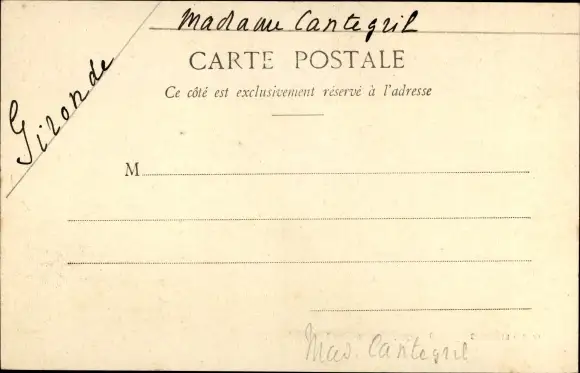 Madame Cantegril
CARTE POSTALE
Ce côté est exclusivement réservé à l'adresse
Gironde
M
Mad. Cantegril